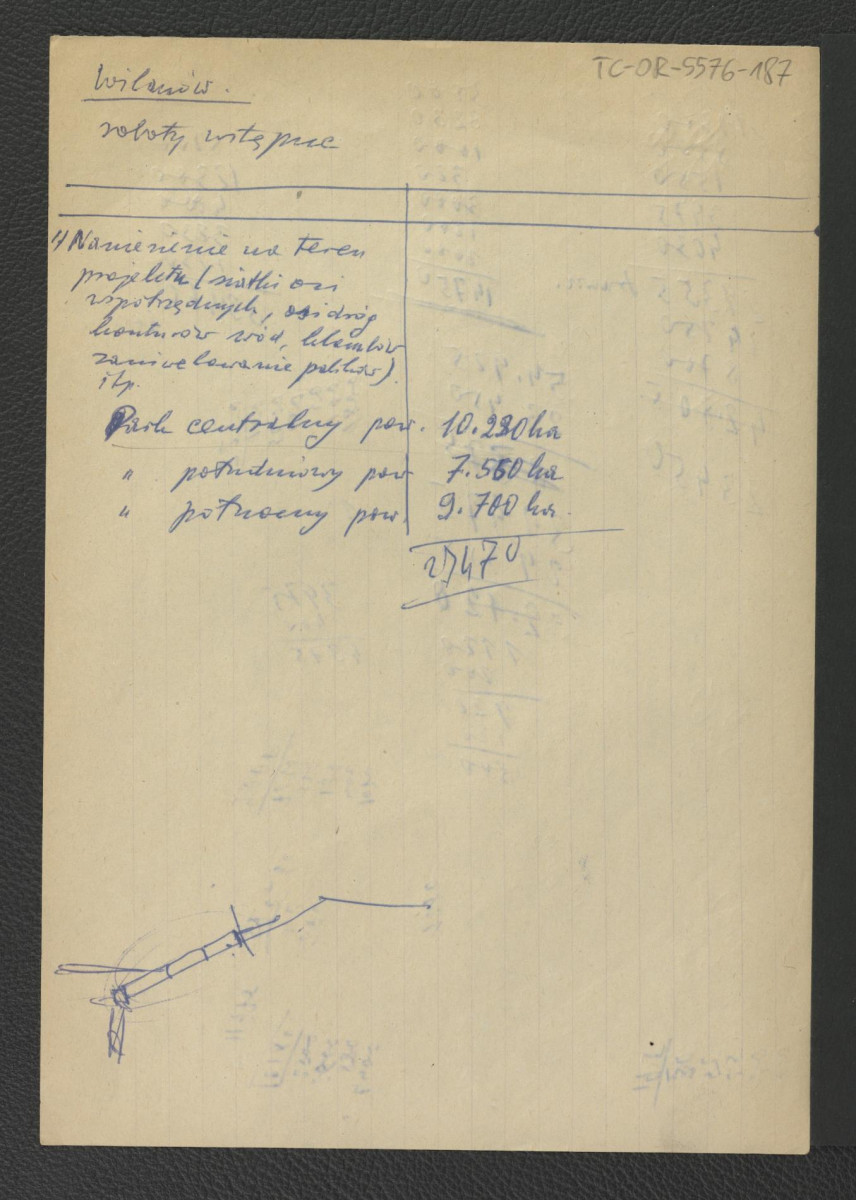 TC-OR-5576-187
Wilanów.
roboty wstępne
1) Naniesienie na teren
projektu (siatki osi
współrzędnych, osi dróg
konturów wód, klombów
zaniwelowanie palików)
itp.
Park centralny pow. 10.230 ha
" południowy pow 7.560 ha
" północny pow. 9.700 ha.
27470